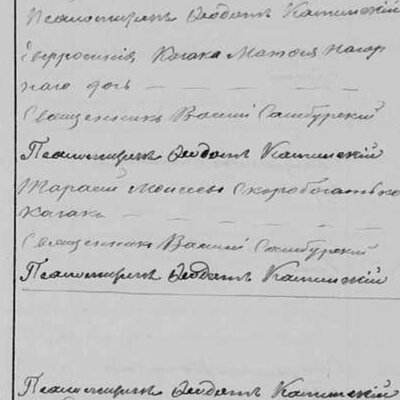 Псаломщикъ Ѳеодотъ Капинскій
Евфросинія Козака Матѳея Нагор
наго дочь
Священникъ Василій Самбурскій
Псаломщикъ Ѳеодотъ Капинскій
Тарасій Моисеевъ Скоробогатько
Козакъ
Священникъ Василій Самбурскій
Псаломщикъ Ѳеодотъ Капинскій
Псаломщикъ Ѳеодотъ Капинскій